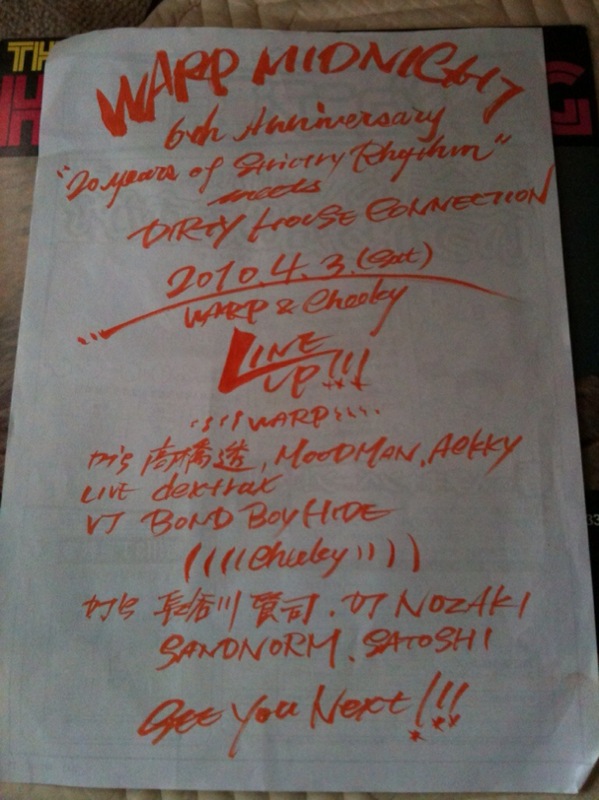 WARP MIDNIGHT
6th Anniversary
"20 years of Strictry Rhythm"
meets
DIRTY HOUSE CONNECTION
2010.4.3.(Sat)
WARP & Cheeky
LINE
UP!!!
WARP
DJ's 高橋透, MOODMAN, Aekky
LIVE dextrax
VJ BOND BOY HIDE
((((cheeky))))
DJ's 長谷川賢司. DJ NOZAKI
SANDNORM. SATOSHI
See You Next!!!